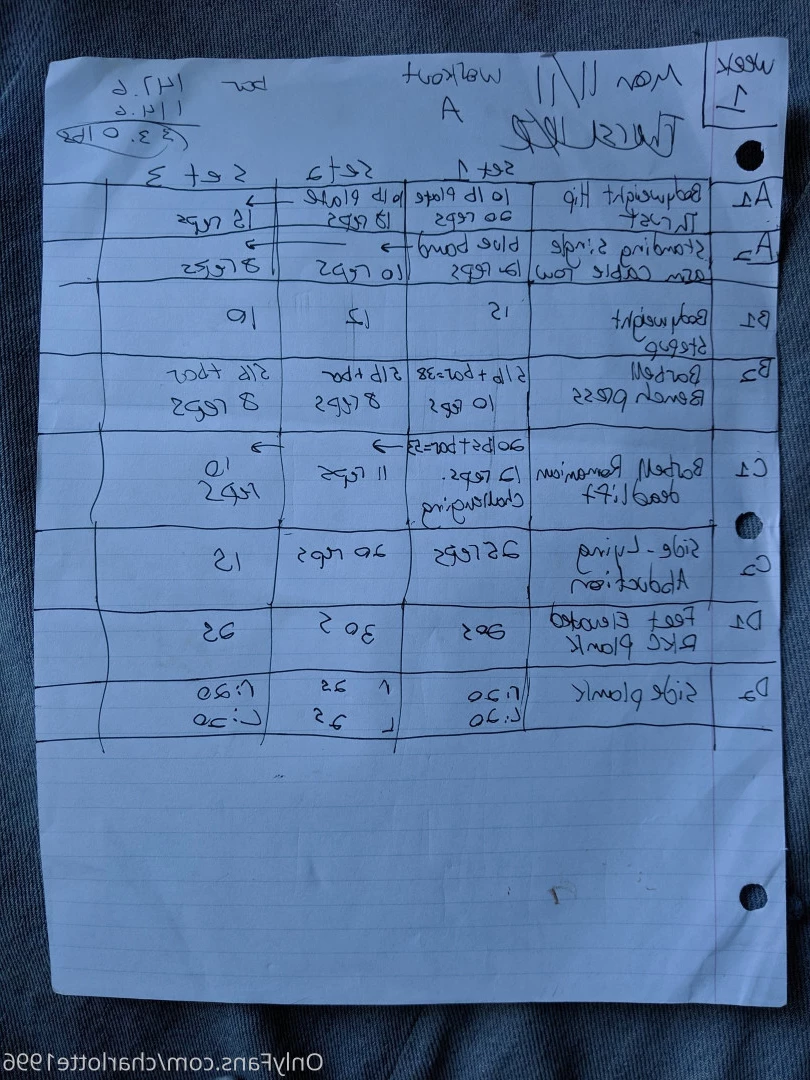 Week
1
Mon 11/11
Workout
A
bar
147.6
114.6
33.0 lbs
Exercise
Set 1
Set 2
Set 3
A1
Bodyweight Hip
Thrust
10 lb plate
20 reps
10 lb plate
reps
→
15 reps
A2
Standing single
arm cable row
blue band →
12 reps
10 reps
→
8 reps
B1
Bodyweight
Stepup
15
12
10
B2
Barbell
Bench press
5 lb + bar=38
10 reps
5 lb + bar
8 reps
5 lb + bar
8 reps
C1
Barbell Romanian
deadlift
20 lbs + bar=53
12 reps.
challenging
→
11 reps
→
10
reps
C2
Side-Lying
Abduction
25 reps
20 reps
15
D1
Feet Elevated
RKC Plank
20s
30 s
25
D2
Side plank
r:20
L:20
r 25
L 25
r:20
L:20
OnlyFans.com/charlotte1996